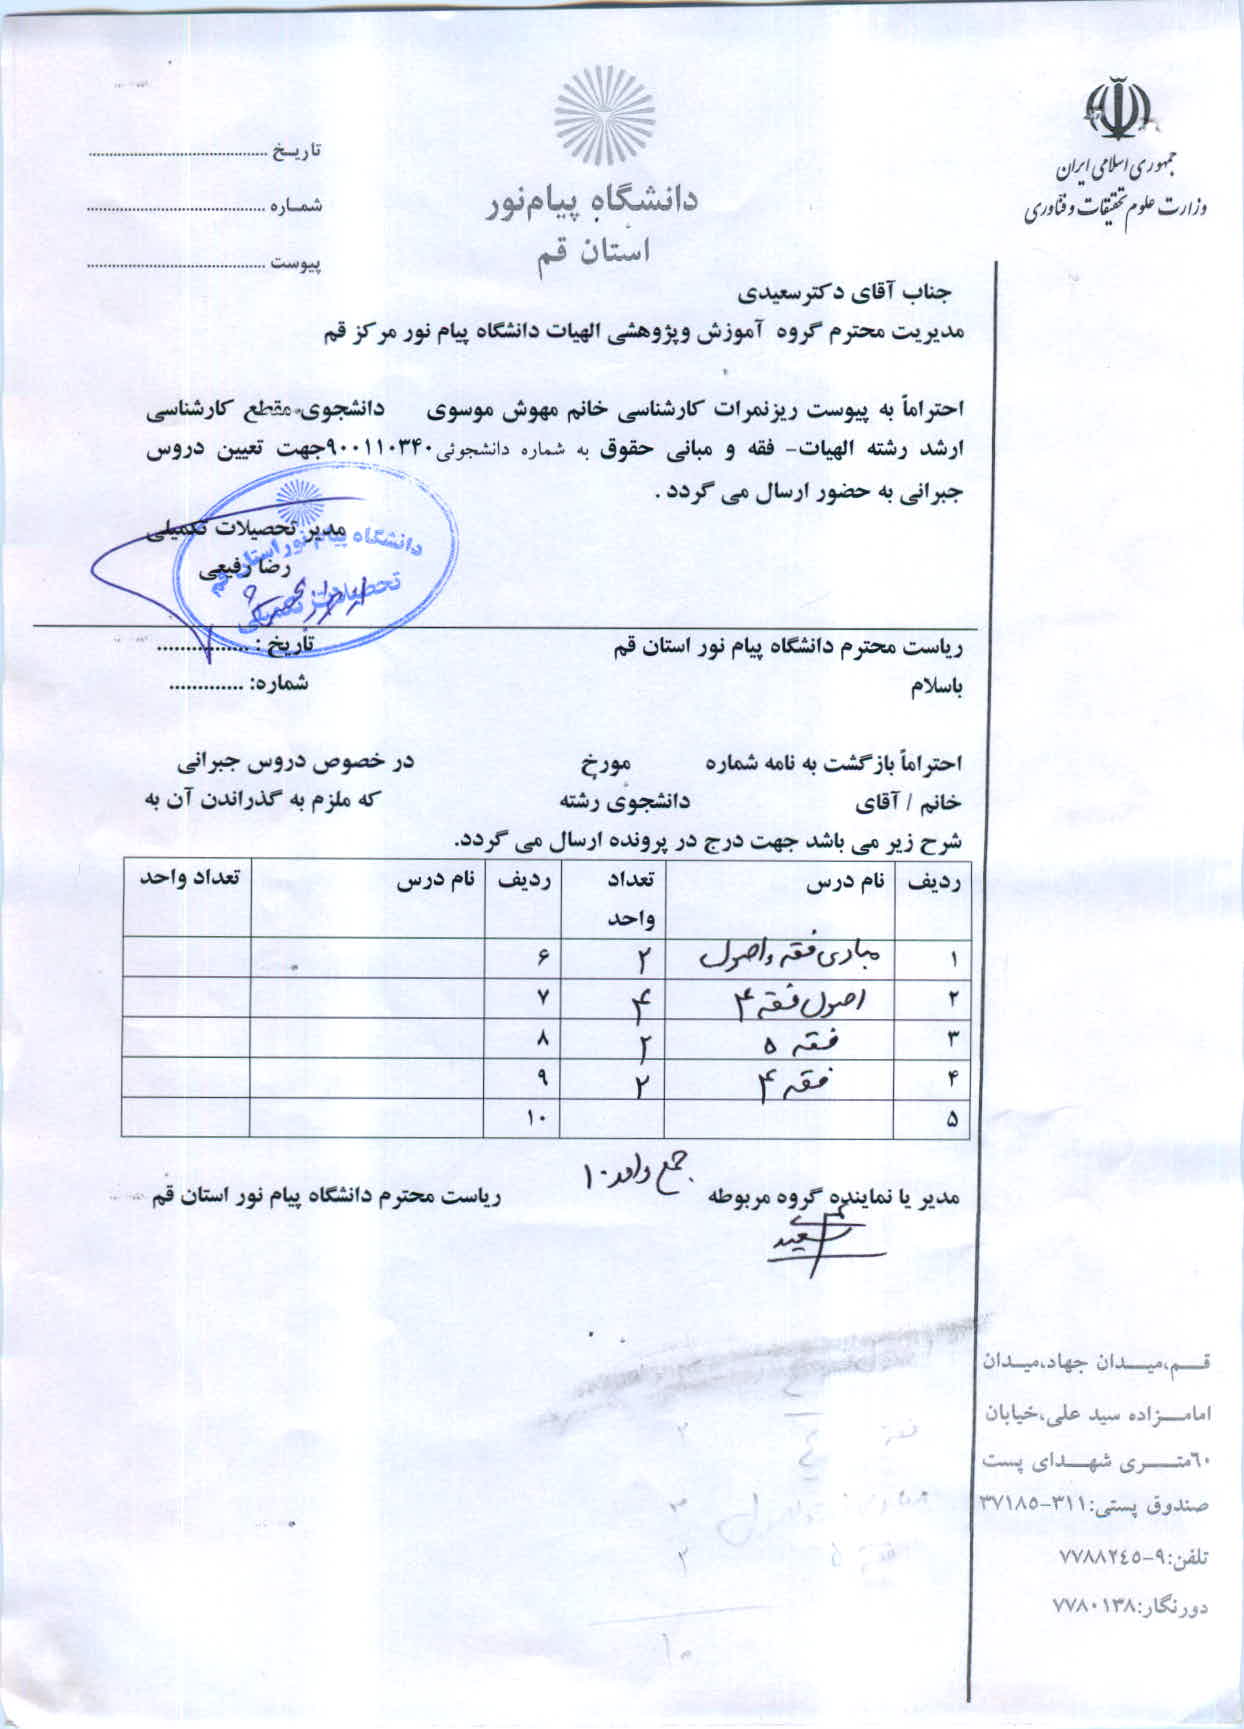 جمهوری اسلامی ایران
وزارت علوم تحقیقات و فناوری
دانشگاه پیام‌نور
استان قم
تاریخ ........................................
شماره ........................................
پیوست ........................................
جناب آقای دکترسعیدی
مدیریت محترم گروه آموزش وپژوهشی الهیات دانشگاه پیام نور مرکز قم
احتراماً به پیوست ریزنمرات کارشناسی خانم مهوش موسوی دانشجوی مقطع کارشناسی
ارشد رشته الهیات- فقه و مبانی حقوق به شماره دانشجوئی۹۰۰۱۱۰۳۴۰جهت تعیین دروس
جبرانی به حضور ارسال می گردد .
مدیر تحصیلات تکمیلی
رضا رفیعی
دانشگاه پیام نور استان قم
تحصیلات تکمیلی
ریاست محترم دانشگاه پیام نور استان قم تاریخ : ................
باسلام شماره: .............
احتراماً بازگشت به نامه شماره مورخ در خصوص دروس جبرانی
خانم / آقای دانشجوی رشته که ملزم به گذراندن آن به
شرح زیر می باشد جهت درج در پرونده ارسال می گردد.
ردیف نام درس تعداد واحد ردیف نام درس تعداد واحد
۱ مبادی فقه و اصول ۲ ۶
۲ اصول فقه ۴ ۴ ۷
۳ فقه ۵ ۲ ۸
۴ فقه ۴ ۲ ۹
۵ ۱۰
جمع واحد ۱۰
مدیر یا نماینده گروه مربوطه ریاست محترم دانشگاه پیام نور استان قم
سعیدی
قم،میدان جهاد،میدان
امامزاده سید علی،خیابان
۶۰متری شهدای پست
صندوق پستی:۳۱۱-۳۷۱۸۵
تلفن:۹-۷۷۸۸۲٤۵
دورنگار:۷۷۸۰۱۳۸